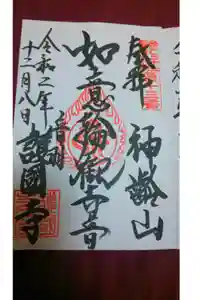 奉拝 神齢山
如意輪観世音
音羽 護国寺
令和二年
十二月八日